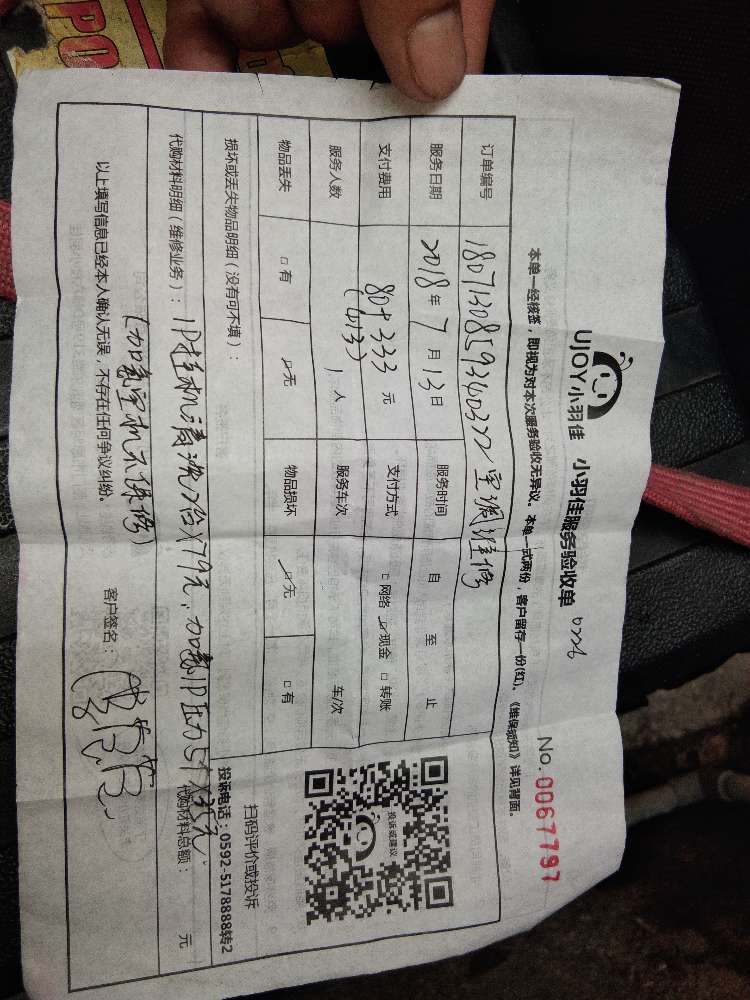 PO
UJOY小羽佳 小羽佳服务验收单
No. 0067797
本单一经核签，即视为对本次服务验收无异议。本单一式两份，客户留存一份(红)。《维保须知》详见背面。
订单编号
空调维修
服务日期 2018年7月13日 服务时间 自 至 止
支付费用 80+333元 支付方式 □网络 ☑现金 □转账
服务人数 1人 服务车次 车/次
物品丢失 □有 ☑无 物品损坏 ☑无 □有
投诉或建议
扫码评价或投诉
投诉电话：0592-5178888转2
损坏或丢失物品明细（没有可不填）：
代购材料明细（维修业务）：1P挂机清洗2台×79元、加氟1P
代购材料总额： 元
以上填写信息已经本人确认无误，不存在任何争议纠纷。
客户签名：